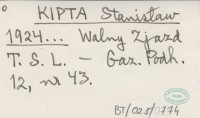 KIPTA Stanisław
1924... Walny Zjazd
T. S. L. – Gaz. Podh.
12, nr 43.
BT/025/0774